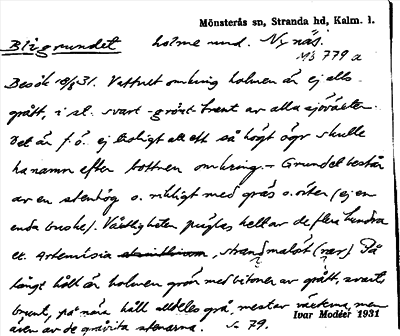 Mönsterås sn, Stranda hd, Kalm. l.
Bligrundet holme und. Nynäs.
Ms 779 a
Besök 18/8 31. Vattnet omkring holmen är ej alls
grått, i st. svart-grönt-brunt av alla sjöväxter.
Det är f.ö. ej troligt att ett så högt ögr skulle
ha namn efter bottnen omkring. – Grundet består
av en stenhög o. rikligt med gräs o. örter (ej en
enda buske). Växtligheten präglas helt av de flera hundra
ex. Artemisia, strandmalört (rar). På
långt håll är holmen grön med bitoner av grått, svart,
brunt, på nära håll alldeles grå, mest av växterna, men
även av de gråvita stenarna. 79.
Ivar Modéer 1931